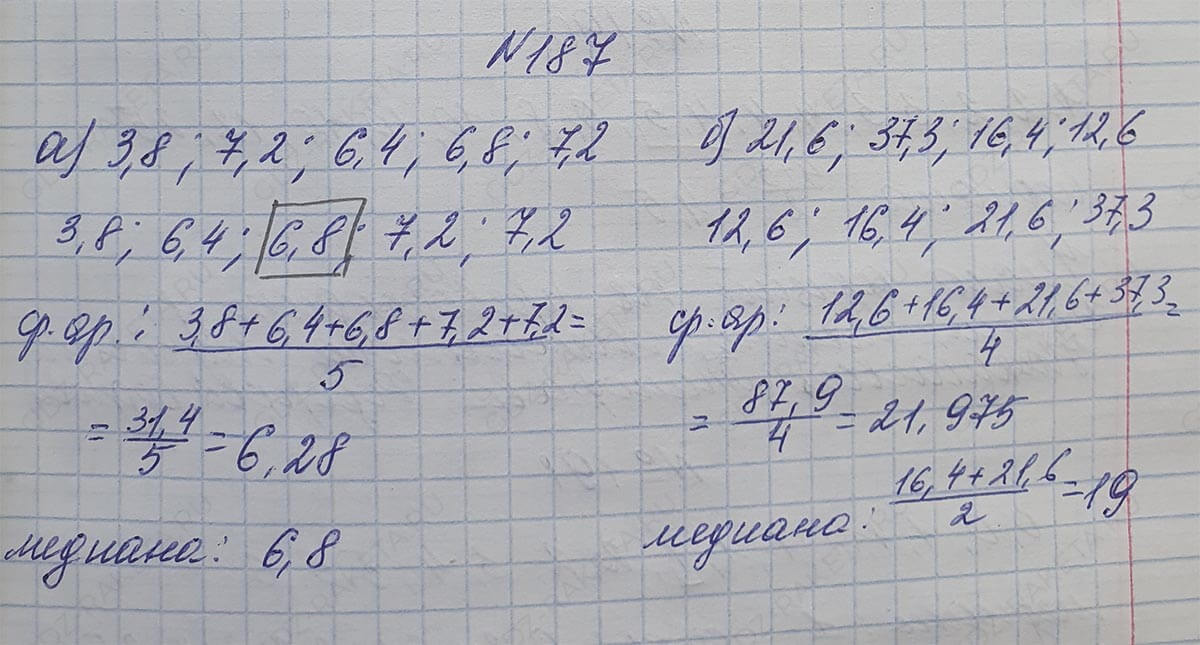 N187
а) 3,8; 7,2; 6,4; 6,8; 7,2
3,8; 6,4; 6,8; 7,2; 7,2
ср. ар.: 3,8+6,4+6,8+7,2+7,2 =
5
= 31,4/5 = 6,28
медиана: 6,8
б) 21,6; 37,3; 16,4; 12,6
12,6; 16,4; 21,6; 37,3
ср. ар: 12,6+16,4+21,6+37,3 =
4
= 87,9/4 = 21,975
медиана: 16,4+21,6/2 = 19